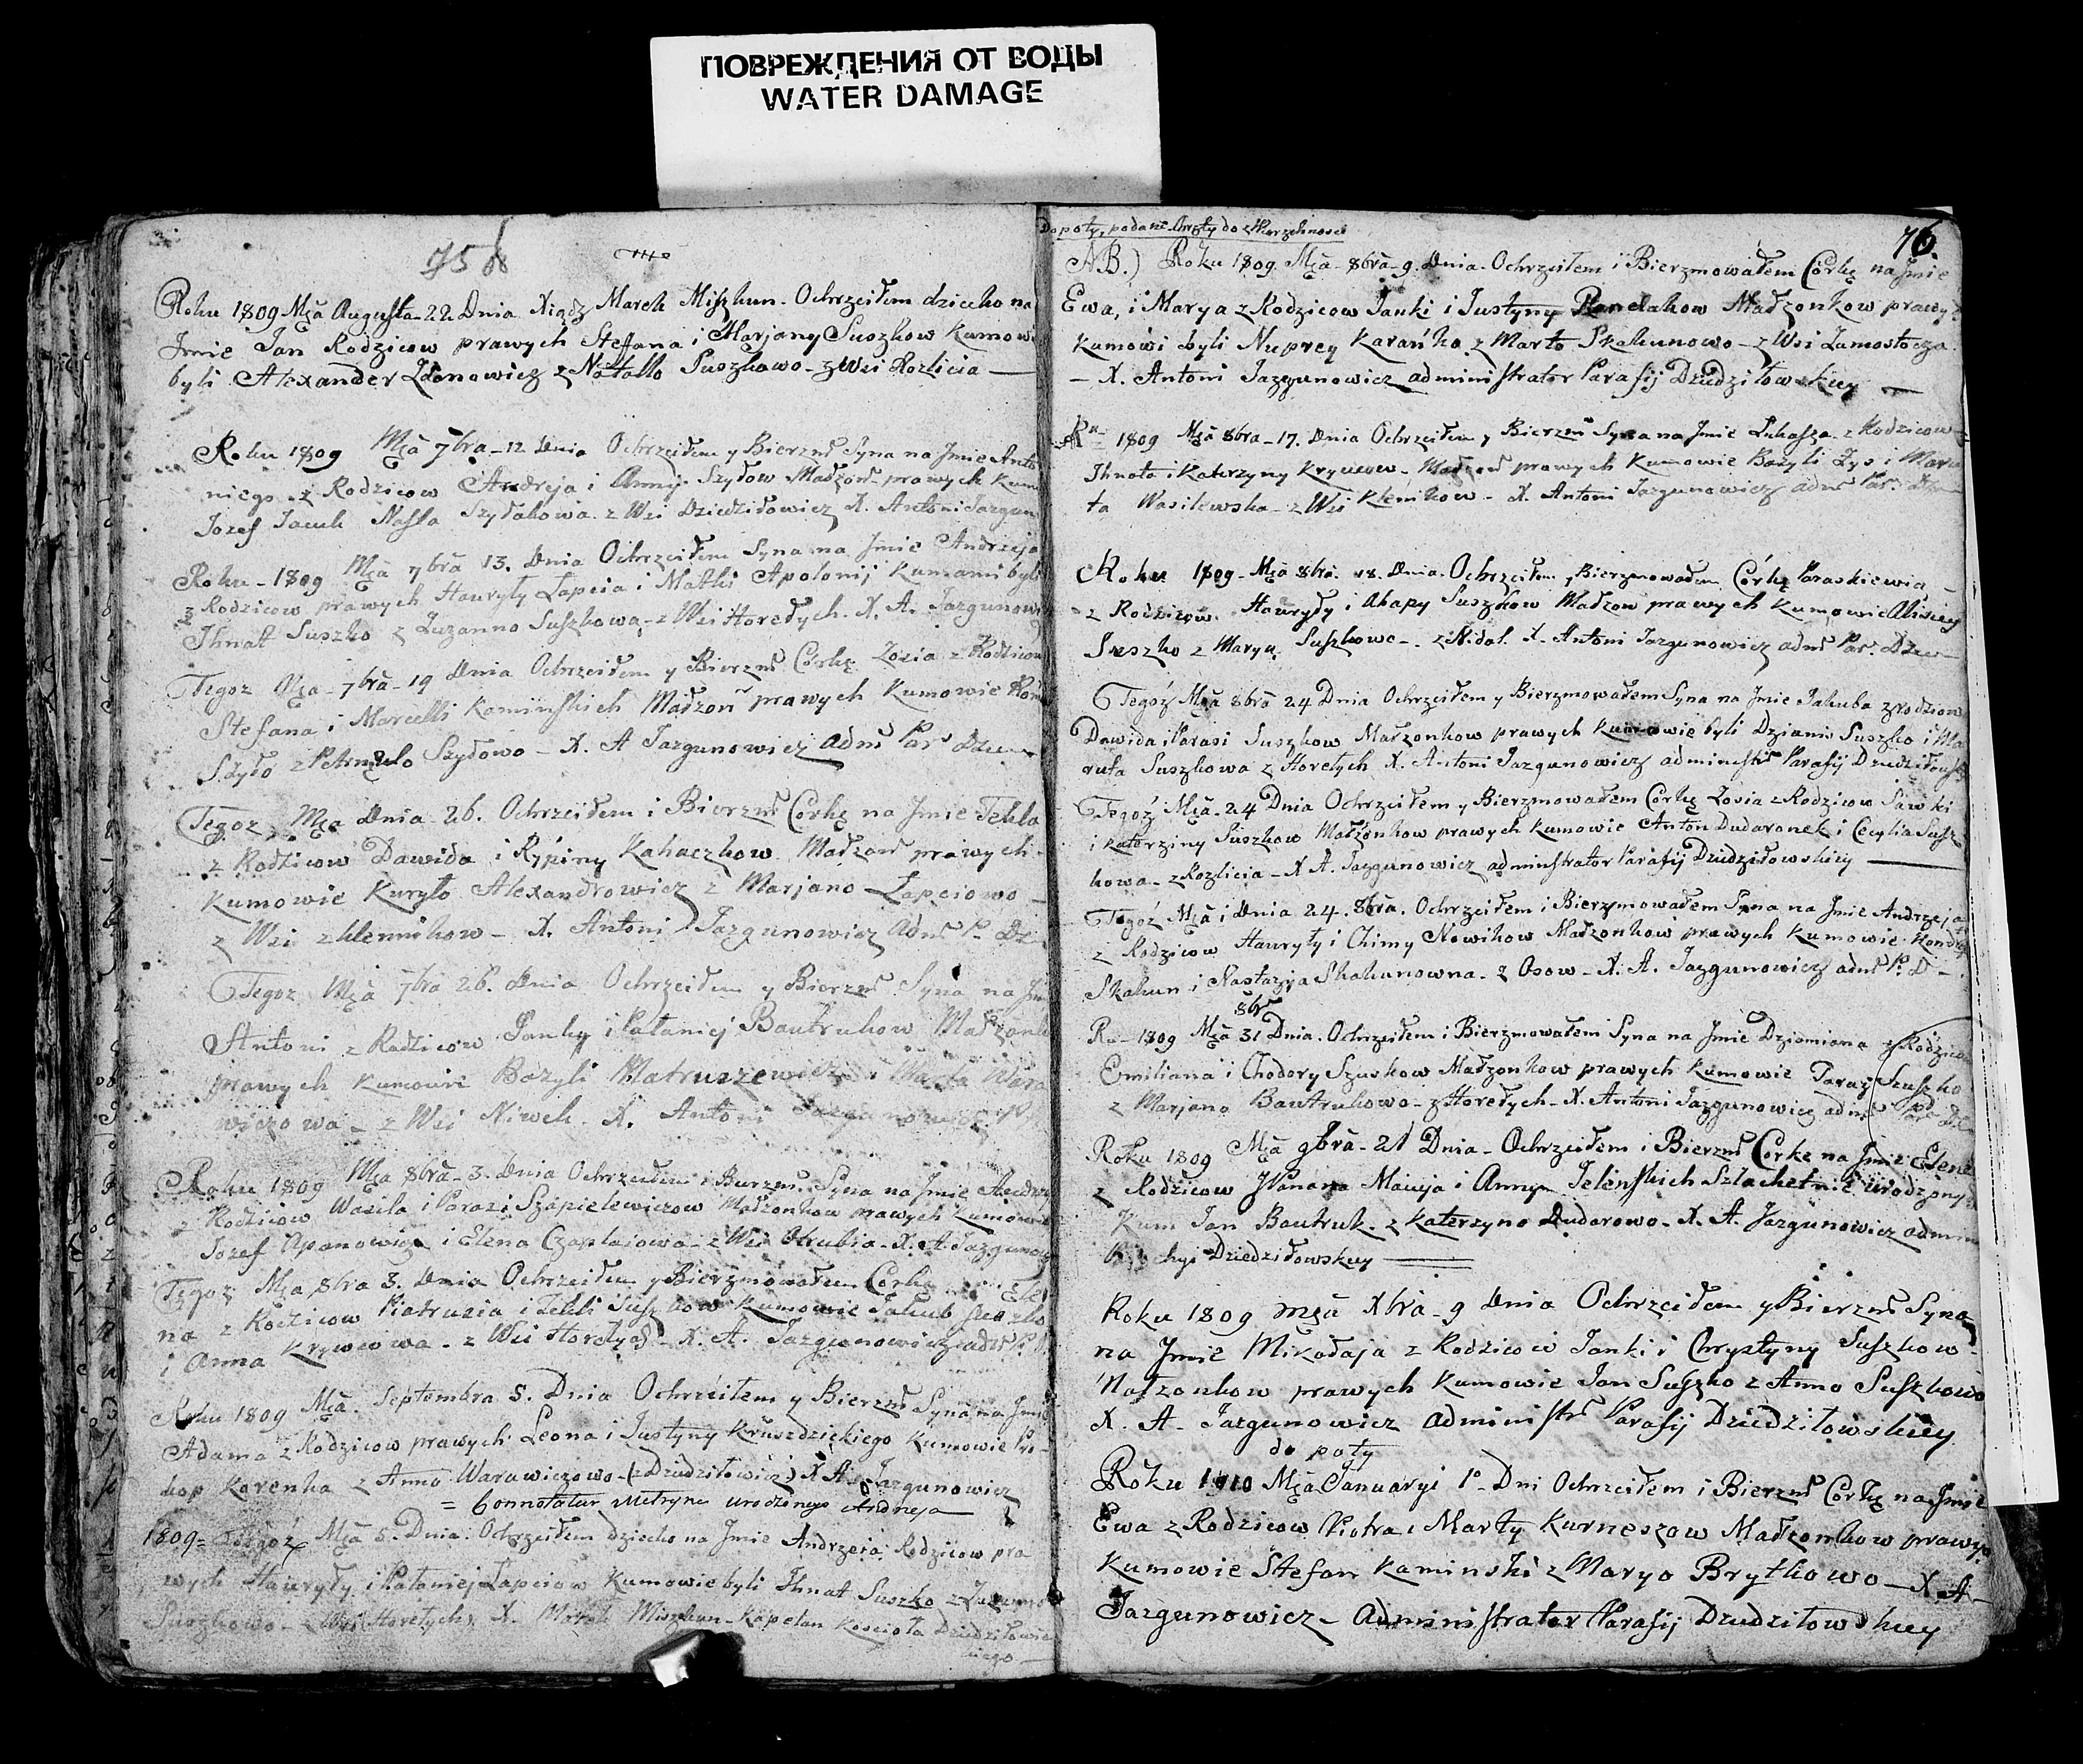 ПОВРЕЖДЕНИЯ ОТ ВОДЫ
WATER DAMAGE
75
Roku 1809 Mca Augusta 22 Dnia Xiądz Marek Miszkun Ochrzciłem dziecko na
Jmie Jan Rodzicow prawych Steffana i Marjany Suszkow Kumowi
byli Alexander Zdanowicz z Natallo Suszkowo z Wsi Kozlicia
Roku 1809 Mca 7bra 12 Dnia Ochrzciłem y Bierzm Syna na Jmie Anto
niego z Rodzicow Andreja i Anny Szyłow Małżow prawych Kum
Jozef Jacuk Nasta Szyłakowa z Wsi Dziedziłowicz X. Antoni Jazgun
Roku 1809 Mca 7bra 13. Dnia Ochrzciłem Syna na Jmie Andrzeja
z Rodzicow prawych Hauryły Łapcia i Matki Apolonij Kumami byli
Ihnat Suszko z Zuzanno Suszkowa z Wsi Horełych. X. A. Jazgunowi
Tegoz Mca 7bra 19 Dnia Ochrzciłem y Bierzm Corkę Zosia z Rodzicow
Stefana i Marcelli Kaminskich Małzon prawych Kumowie
Szyło z Petrunelo Szyłowo X. A Jazgunowicz adm Par Dzie
Tegoz Mca Dnia 26. Ochrzciłem i Bierzm Corkę na Jmie Tekla
z Rodzicow Dawida i Rypiny Kahaczkow Małzow prawych
Kumowie Kuryło Alexandrowicz z Marjano Łapciowo
z Wsi z Klennikow X. Antoni Jazgunowicz Adm P. Dzi
Tegoz Mca 7bra 26. Dnia Ochrzciłem y Bierzm Syna na Jm
Antoni z Rodzicow Janky i Pałaniej Bautrukow Małzonk
prawych Kumowie Bazyli Matruszewicz i Marta Wara
wiczowa z Wsi Niwek. X. Antoni
Roku 1809 Mca 8bra 3. Dnia Ochrzciłem i Bierzm. Syna na Jmie Andrzej
z Rodzicow Wasila i Parasi Szapielewiczow Małzonkow prawych Kumowie
Jozef Apanowicz i Elena Czaplaiowa z Wsi Otrubia X. A. Jazgunow
Tegoz Mca 8bra 3. Dnia Ochrzciłem y Bierzmowałem Corkę Ele
na z Rodzicow Piatrusia i Tekli Suszkow Kumowie Jakub Suszko
i Anna Krywcowa z Wsi Horełych X. A. Jazgunowicz adm P.
Roku 1809 Mca Septembra 5. Dnia Ochrzciłem y Bierzm Syna na Jmie
Adama z Rodzicow prawych Leona i Justyny Kruszdzickiego Kumowie Pro
kop Korenka z Anno Warawiczowo (z Dziedziłowicz) X A. Jazgunowicz
= Connotatur Metryka urodzonego Andrzeja
1809 = Tegoż Mca 5. Dnia Ochrzciłem dziecko na Jmie Andrzeia Rodzicow pra
wych Hauryły i Pałaniej Łapciow Kumowie byli Ihnat Suszko z Zuzanno
Suszkowo z Wsi Horełych X. Marek Miszkun Kapelan Koscioła Dziedziłowic
kiego
Dopoty, podane Chrzty do Zwierzchnosci
76.
NB.) Roku 1809. Mca 8bra 9. Dnia Ochrzciłem i Bierzmowałem Corkę na Jmie
Ewa, i Marya z Rodzicow Janki i Justyny Małżonkow prawy
Kumowi byli Nuprey Karańko z Marto Skakunowo z Wsi Zamostocza
X. Antoni Jazgunowicz administrator Parafij Dziedziłowskiey
Ru 1809 Mca 8bra 17. Dnia Ochrzciłem y Bierzm Syna na Jmie Łukasza z Rodzicow
Ihnata i Katerzyny Krywcow Małzow prawych Kumowie Bazyli Zys i Mar
ta Wasilewska z Wsi Klenikow X. Antoni Jazgunowicz adm Par. Dzie
Roku 1809 Mca 8bra 18. Dnia Ochrzciłem y Bierzmowałem Córkę Paraskiewia
z Rodzicow Hauryły i Ahapy Suszkow Małzow prawych Kumowie Alisiey
Suszko z Marya Suszkowo z Nidal. X. Antoni Jazgunowicz adm Par. Dzie
Tegoż Mca 8bra 24 Dnia Ochrzciłem y Bierzmowałem Syna na Jmie Jakuba z rodzicow
Dawida i Parasi Suszkow Małzonkow prawych Kumowie byli Dziamid Suszko i Ma
ruta Suszkowa z Horełych X. Antoni Jazgunowicz administr Parafij Dziedziłowsk
Tegoż Mca 24 Dnia Ochrzciłem y Bierzmowałem Corkę Zosia z Rodzicow Sawki
i Katerziny Suszkow Małżonkow prawych Kumowie Anton Dudaronek i Cecylia Susz
kowa z Kozlicia X A. Jazgunowicz administrator Parafij Dziedziłowskiey
Tegoż Mca i Dnia 24. 8bra. Ochrzciłem i Bierzmowałem Syna na Jmie Andrzeja
z Rodzicow Hauryły i Chimy Nowikow Małzonkow prawych Kumowie Kondrat
Skakun i Nastazyja Skakunowna z Osow X. A. Jazgunowicz adm P. D
8br
Ru 1809 Mca 31 Dnia. Ochrzciłem i Bierzmowałem Syna na Jmie Dziamiana z Rodzicow
Emiliana i Chodory Szuszkow Małzonkow prawych Kumowie Taras Szuszko
z Marjano Bautrukowo z Horełych X. Antoni Jazgunowicz adm Par Dzie
Roku 1809 Mca 9bra 21 Dnia Ochrzciłem i Bierzm Corkę na Jmie Elena
z Rodzicow JPanana Macieja i Anny Jelenskich Szlachetnie urodzony
Kum Jan Bautruk z Katerzyno Dudarowo X. A. Jazgunowicz admini
Parochyi Dziedziłowskiey
Roku 1809 Mca Xbra 9 Dnia Ochrzciłem y Bierzm Syna
na Jmie Mikołaja z Rodzicow Janki i Chrystyny Suszkow
Małzonkow prawych Kumowie Jan Suszko z Anno Suszkowo
X. A. Jazgunowicz administr Parafij Dziedziłowskiey
do poty
Roku 1810 Mca Januaryi 1° Dni Ochrzciłem i Bierzm Corkę na Jmie
Ewa z Rodzicow Piotra i Marty Kurneszow Małzonkow prawych
Kumowie Stefan Kaminski z Maryo Brytkowo X. A
Jazgunowicz Administrator Parafij Dziedziłowskiey